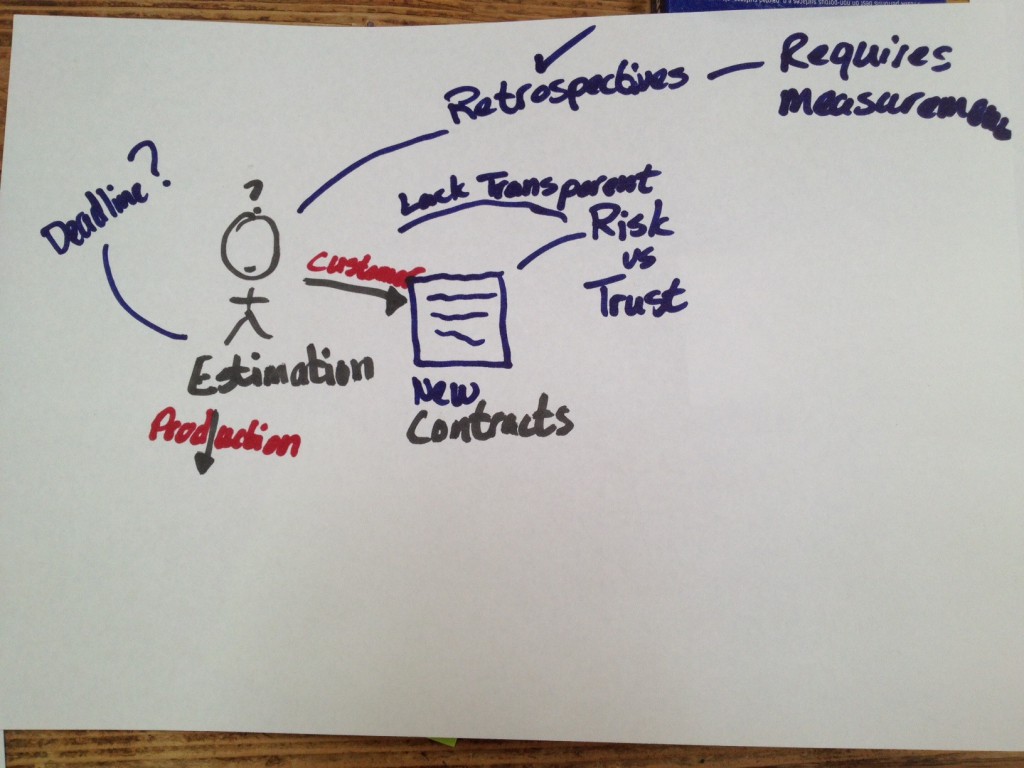 Retrospectives
Requires
Measurement
Deadline?
?
Lack Transparent
Risk
vs
Trust
Customer
Estimation
New
Contracts
Production